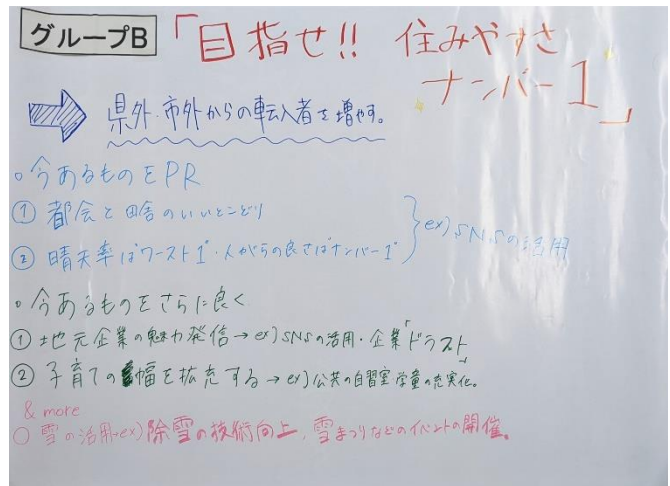 グループB
「目指せ!! 住みやすさ
ナンバー1」
県外・市外からの転入者を増やす。
○今あるものをPR
① 都会と田舎のいいとこどり
② 晴天率はワースト1・人がらの良さはナンバー1
ex) SNSの活用
○今あるものをさらに良く
① 地元企業の魅力発信→ex) SNSの活用・企業「ドラスト」
② 子育ての幅を拡充する→ex) 公共の自習室 学童の充実化。
& more
○ 雪の活用→ex) 除雪の技術向上、雪まつりなどのイベントの開催。